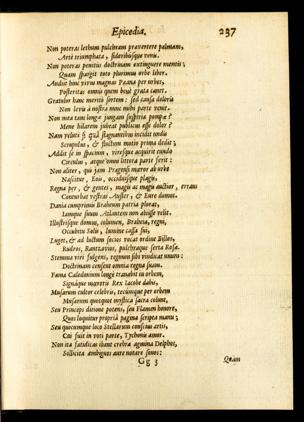 Epicedia. 237
Non poteras lethum pulchram prævertere palmam,
Arte triumphata, sideribusque veni.
Non poteras penitus doctrinam extinguere mentis;
Quam spargit toto plurimus orbe liber.
Audiit hinc virus magnas Pæana per orbes,
Posteritas omnis quem boat grata canet.
Gratulor hanc meritis sortem: sed causa doloris
Non levis à nostra nunc mihi parte venit.
Non nota tam longæ jungam suspiria pompæ?
Mene hilarem jubeat publicus esse dolor?
Nam veluti si quâ stagnantibus incidat undis
Scrupulus, & fluctum motio prima dedit;
Addit se in spacium, viresque acquirit eundo
Circulus, atque omni littora parte ferit:
Non aliter, qui jam Pragensi mæror ab urbe
Nascitur, Eois, occiduisque plagis,
Regna per, & gentes, magis ac magis auctior, errans
Conturbat vestras Auster, & Eure domos.
Dania cumprimis Braheum patria plorat,
Lumque suum Atlantem non abiisse velit.
Illustrisque domus, columen, Braheia, regni,
Occubitu Solis, lumine cassa sui,
Luget, & ad luctum socios vocat ordine Billeos,
Rudios, Rantzavios, pulchraque serta Rosæ.
Stemma viri fulgens, regnum sibi vindicat unum:
Doctrinam censent omnia regna suam.
Fama Caledonium longè tranabit in orbem,
Signaque mæroris Rex Iacobe dabis,
Musarum cultor celebris, tecumque per orbem
Musarum quotquot mystica sacra colunt,
Seu Princeps ditione potens, seu Flamen honore,
Quos loquitur propriâ pagina scripta manu;
Seu quocumque loco Stellarum conscius artis,
Cui fuit in voti parte, Tychonis amor.
Non ita fatidicas ibant crebra agmina Delphos,
Sollicita ambiguos aure notare sonos:
Gg 3 Quàm